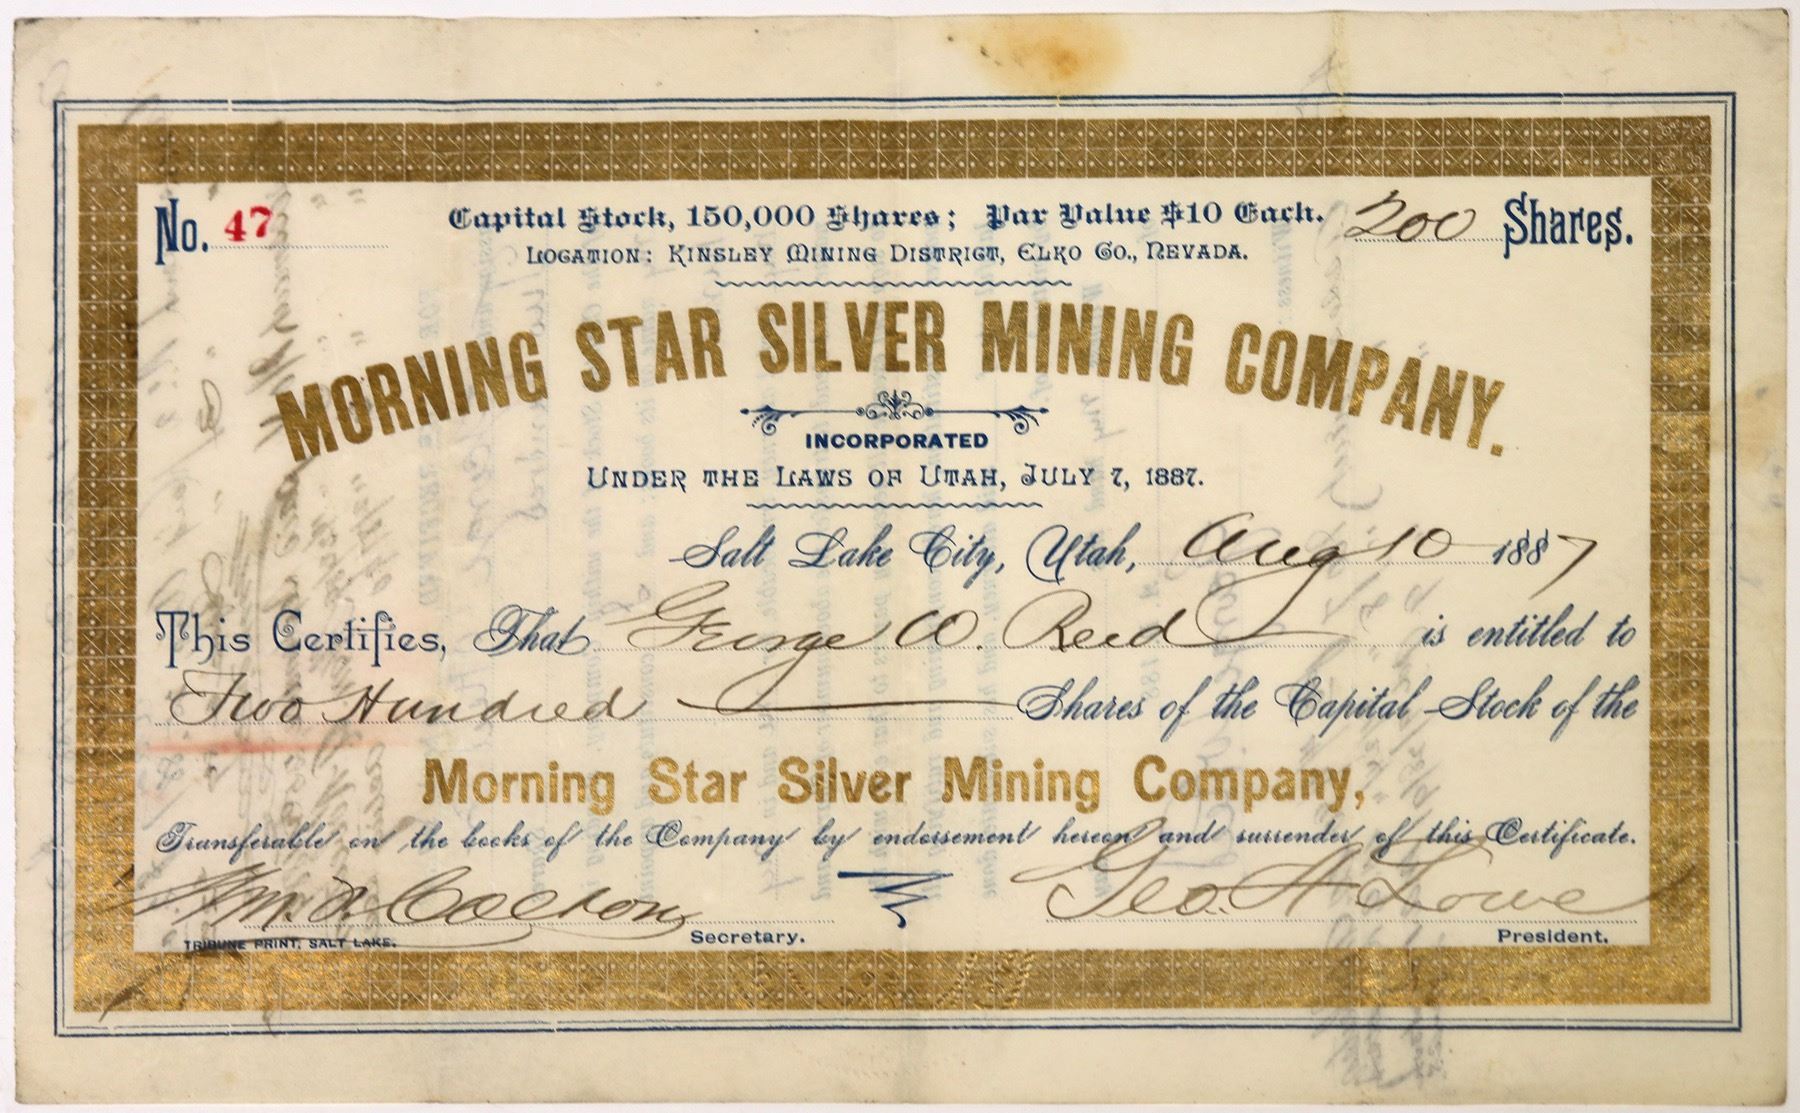 No. 47
Capital Stock, 150,000 Shares; Par Value $10 Each. 200 Shares.
Location: Kinsley Mining District, Elko Co., Nevada.
MORNING STAR SILVER MINING COMPANY.
INCORPORATED
Under the Laws of Utah, July 7, 1887.
Salt Lake City, Utah, Aug 10 1887
This Certifies, That George W. Reed is entitled to
Two Hundred Shares of the Capital Stock of the
Morning Star Silver Mining Company,
Transferable on the books of the Company by endorsement hereon and surrender of this Certificate.
Wm. Geo. H Lowe
TRIBUNE PRINT, SALT LAKE. Secretary. President.